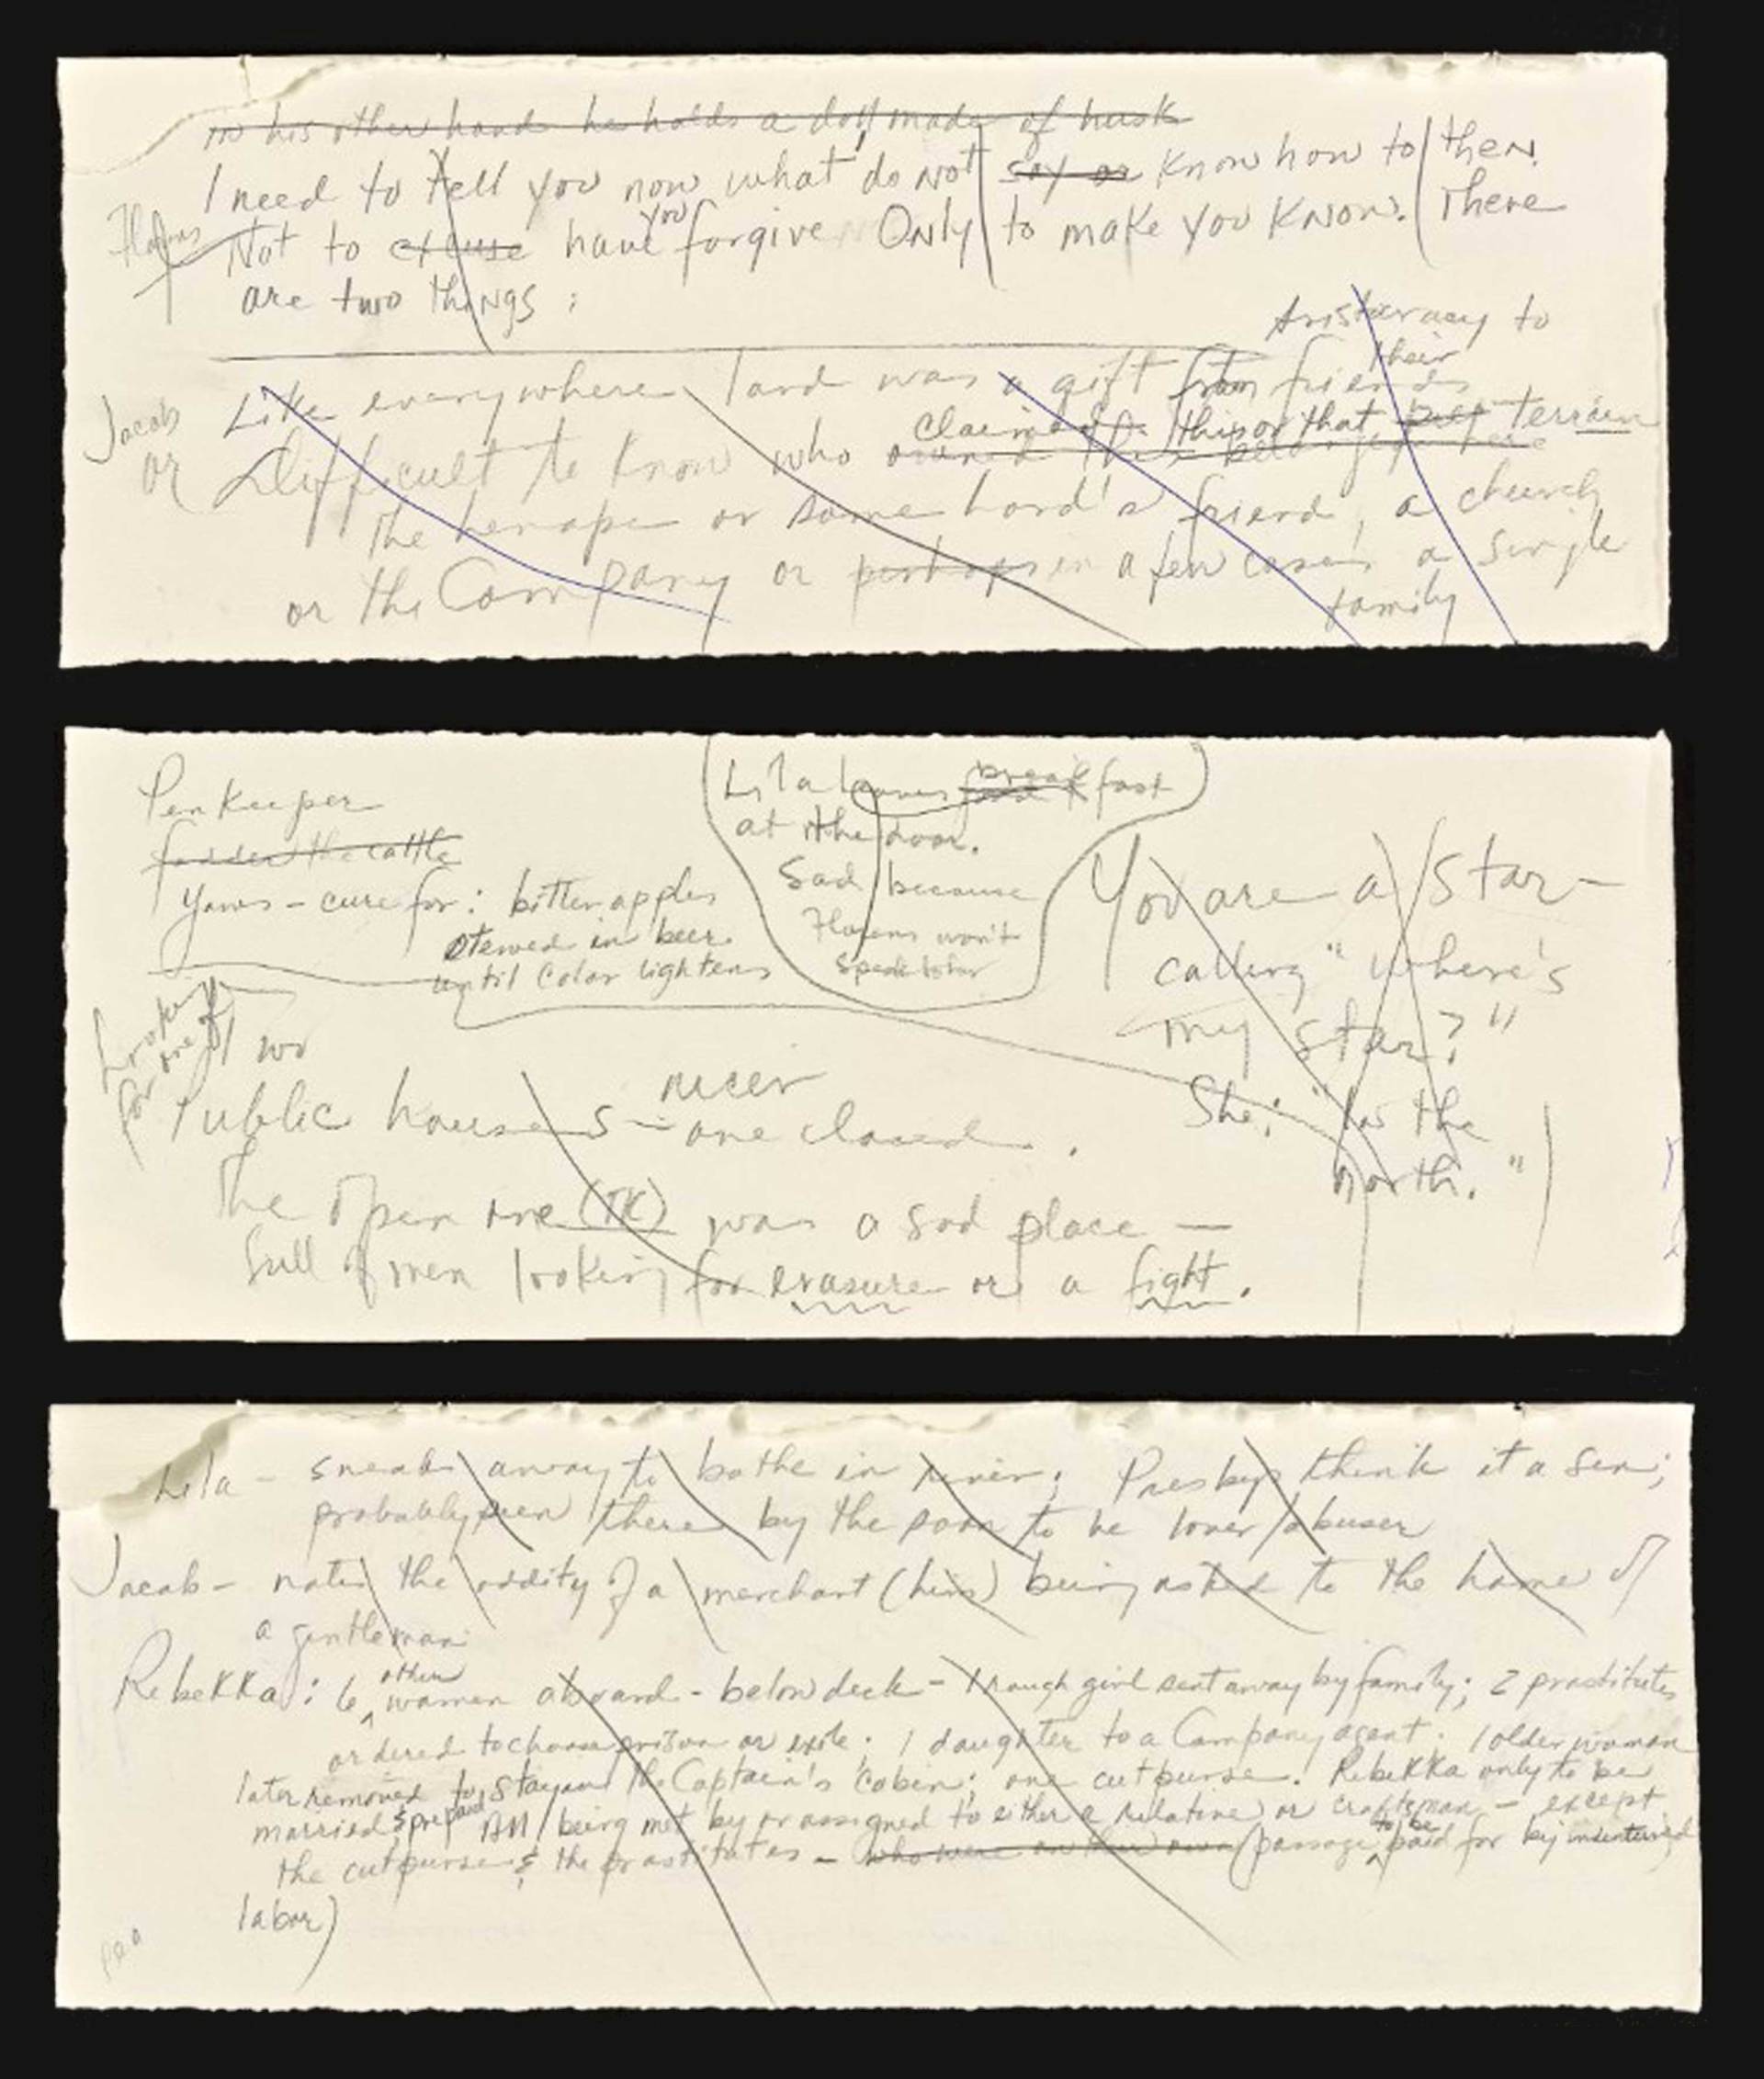 in his other hand he holds a doll made of husk
I need to tell you now what do not say or know how to then.
Florens
Not to excuse have you forgive Only to make you know. There
are two things :
Aristocracy to
their
Jacob
Like everywhere land was a gift from friends
claimed this or that terrain
or
Difficult to know who owned
the or some lord's friend, a church
or the Company or perhaps in a few cases a single
family
Penkeeper
fodder the cattle
Yaws - cure for : bitter apples
stewed in beer
until color lightens
Lila leaves breakfast
at the door.
Sad because
Florens won't
speak to her
You are a star -
calling "where's
my star?"
She: "in the
north."
Looking
for one of
Two
Public houses - nicer one closed.
The open one (TK) was a sad place —
full of men looking for erasure or a fight.
Lila - sneaks away to bathe in river; Presbys think it a sin;
probably seen there by the man to be lover/abuser
Jacob - notes the oddity of a merchant (him) being asked to the home of
a gentleman
Rebekka : 6 other women aboard - below deck - 1 rough girl sent away by family; 2 prostitutes
ordered to choose prison or exile; 1 daughter to a Company agent; 1 older woman
later removed to stay in the Captain's cabin; one cutpurse. Rebekka only to be
married & prepaid All being met by or assigned to either a relative or craftsman - except
the cutpurse & the prostitutes - who were on their own (passage to be paid for by indentured
labor)